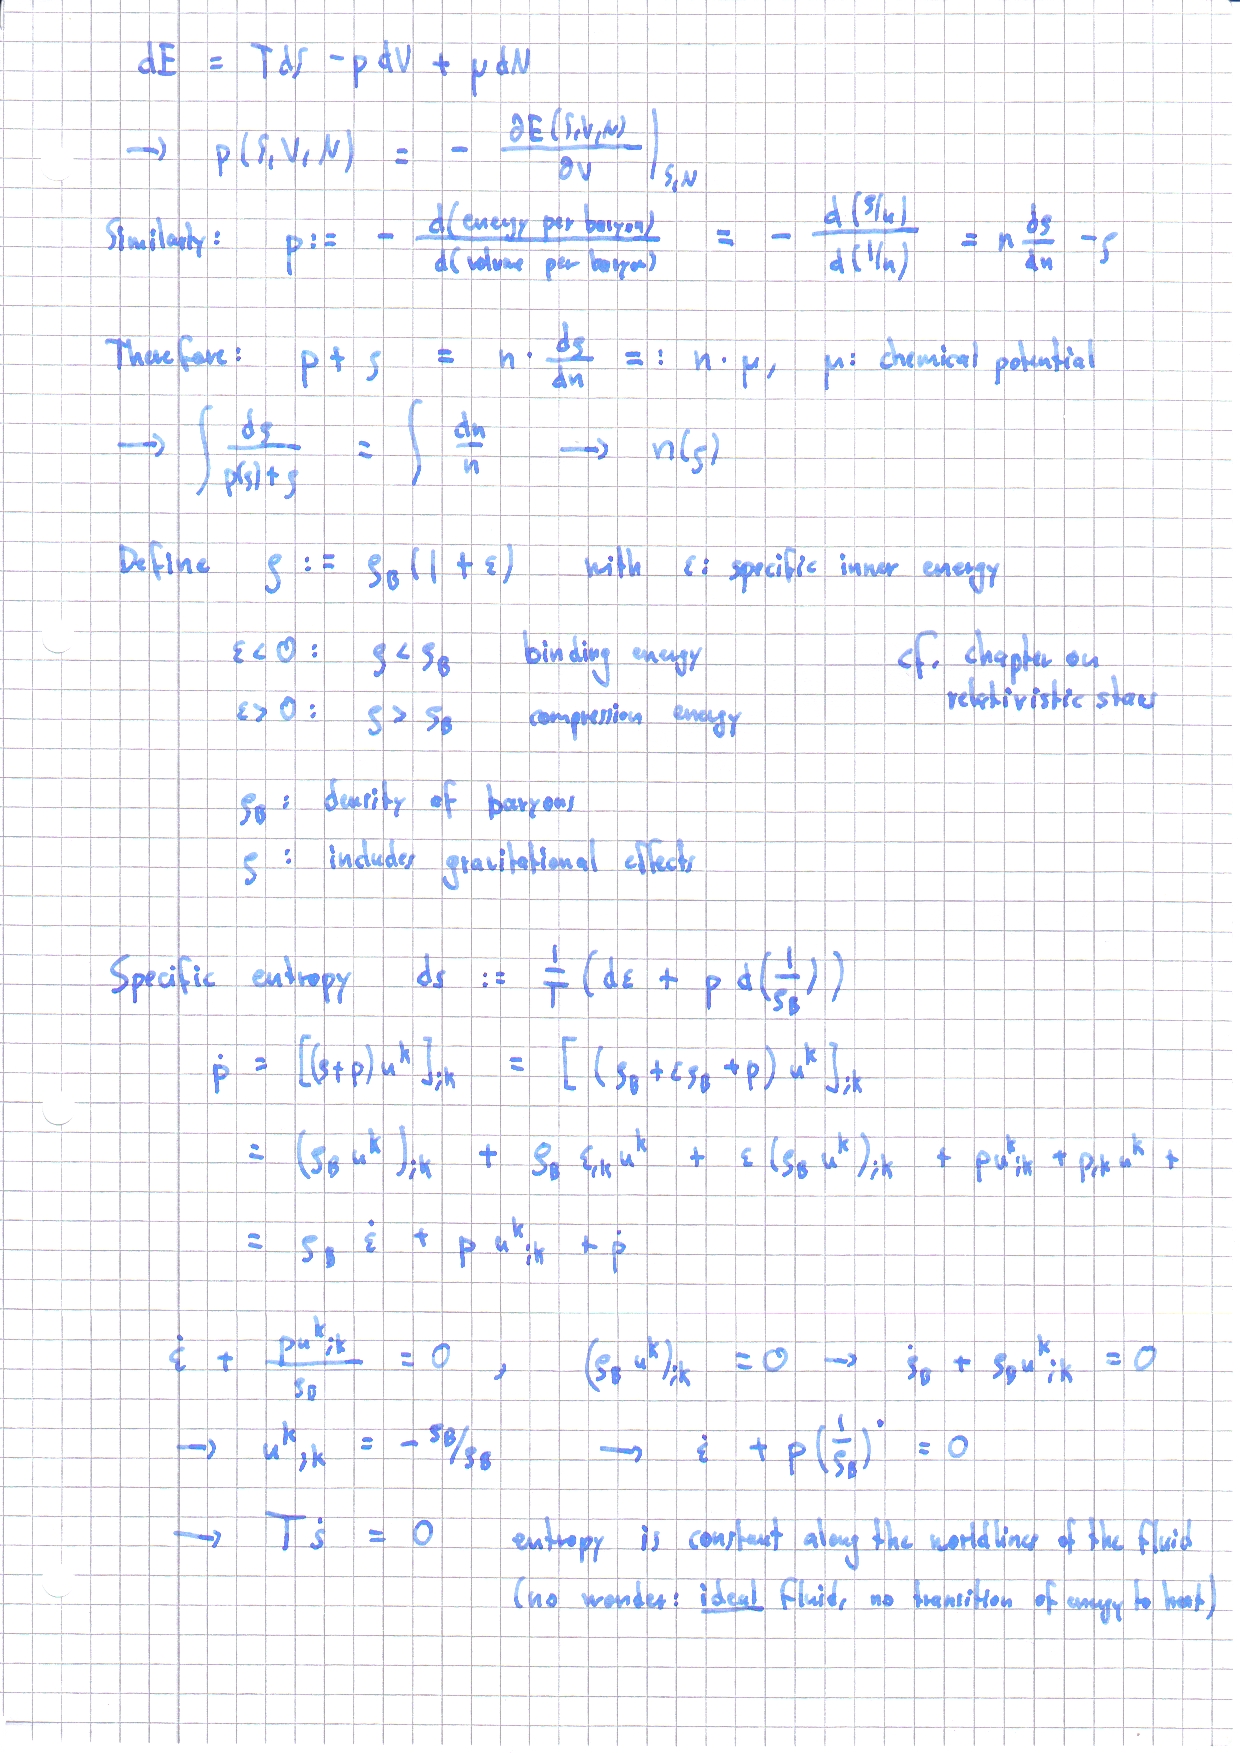 dE = TdS - p dV + μ dN
→ p(S, V, N) = - ∂E(S,V,N)/∂V |S,N
Similarly: p := - d(energy per baryon)/d(volume per baryon) = - d(ρ/n)/d(1/n) = n dρ/dn - ρ
Therefore: p + ρ = n · dρ/dn =: n · μ, μ: chemical potential
→ ∫ dρ/(p(ρ)+ρ) = ∫ dn/n → n(ρ)
Define ρ := ρB (1 + ε) with ε: specific inner energy
ε < 0 : ρ < ρB binding energy cf. chapter on
relativistic stars
ε > 0 : ρ > ρB compression energy
ρB : density of baryons
ρ : includes gravitational effects
Specific entropy ds := 1/T (dε + p d(1/ρB))
ṗ = [(ρ+p) u^k];k = [(ρB + ερB + p) u^k];k
= (ρB u^k);k + ρB ε,k u^k + ε (ρB u^k);k + p u^k;k + p,k u^k +
= ρB ε̇ + p u^k;k + ṗ
ε̇ + p u^k;k / ρB = 0 , (ρB u^k);k = 0 → ρ̇B + ρB u^k;k = 0
→ u^k;k = - ρB/ρB → ε̇ + p (1/ρB)˙ = 0
→ T ṡ = 0 entropy is constant along the worldlines of the fluid
(no wonder: ideal fluid, no transition of energy to heat)